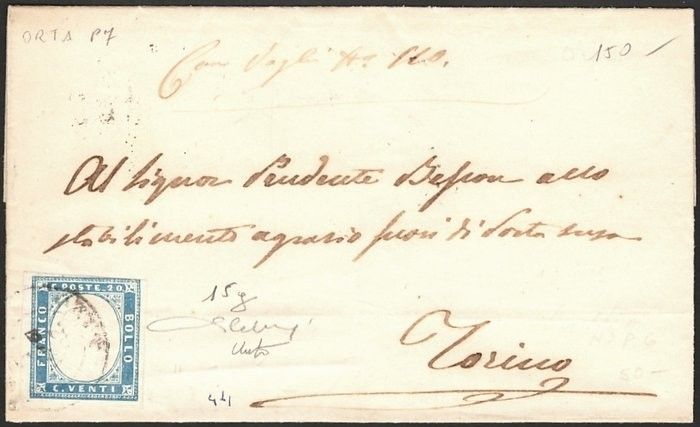 ORTA P7
150
Al Signor Prudente Besson allo
stabilimento agrario fuori di Porta susa
Torino
C. POSTE. 20
FRANCO
BOLLO
C. VENTI
15g
44
N° P 6
50-